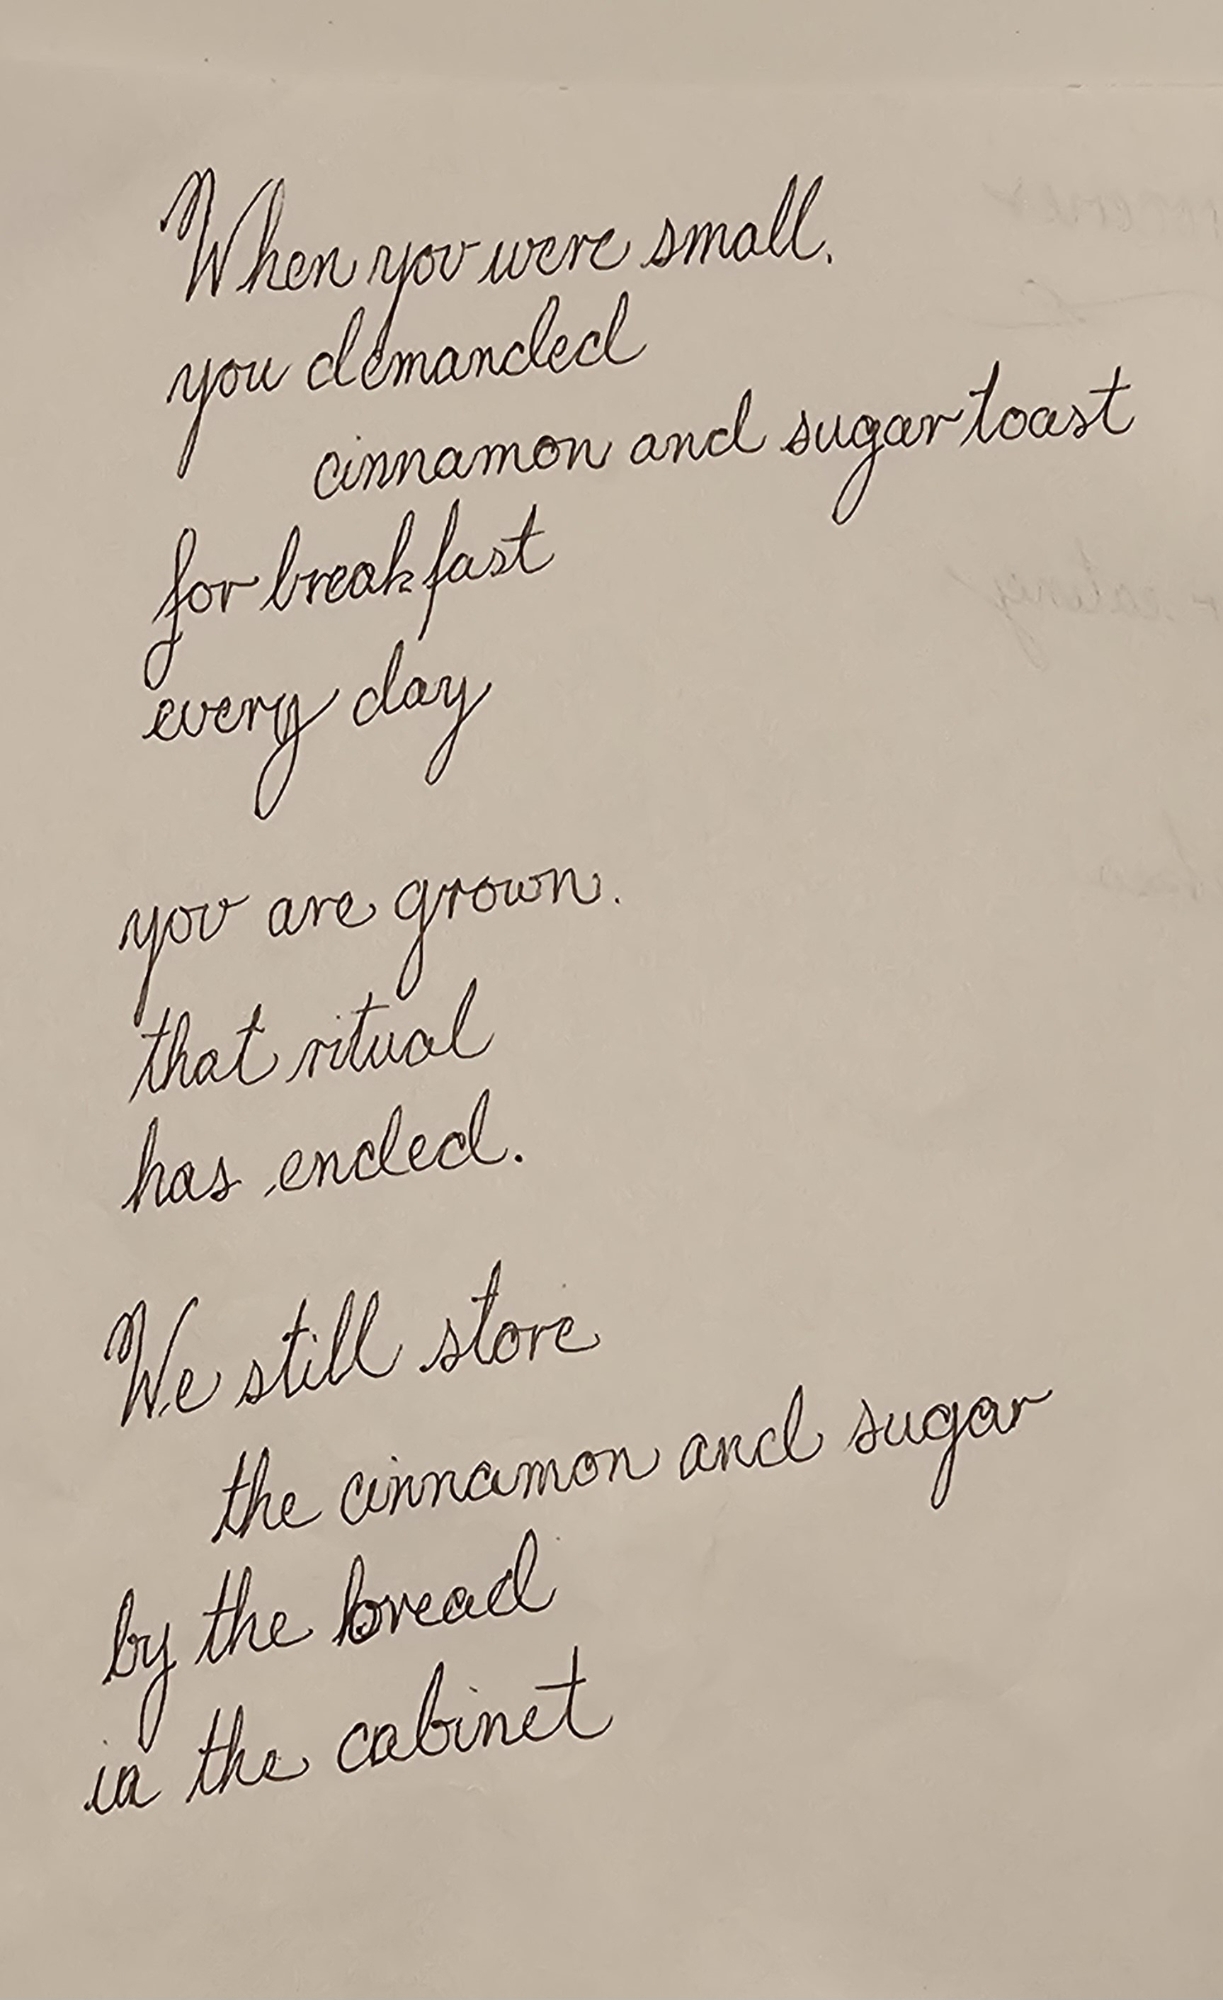 When you were small,
you demanded
cinnamon and sugar toast
for breakfast
every day
you are grown.
that ritual
has ended.
We still store
the cinnamon and sugar
by the bread
in the cabinet